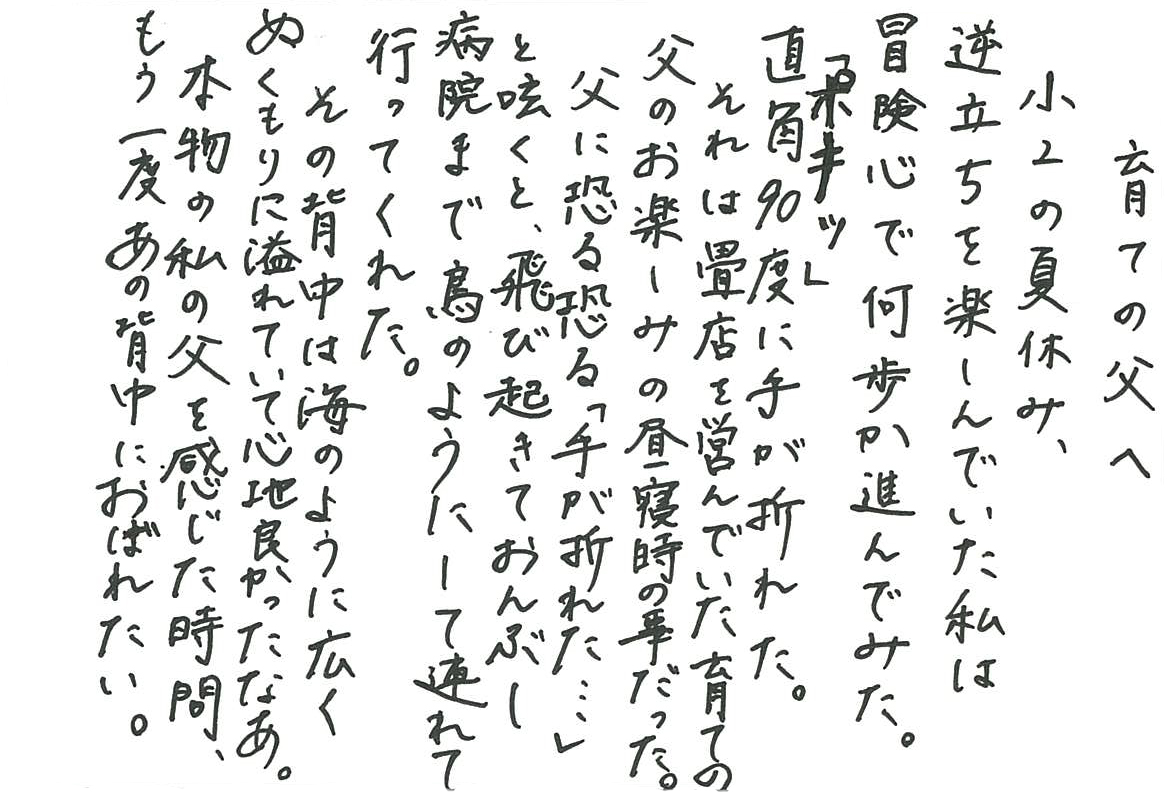 育ての父へ
小2の夏休み、
逆立ちを楽しんでいた私は
冒険心で何歩か進んでみた。
「ポキッ」
直角90度に手が折れた。
それは畳店を営んでいた育ての
父のお楽しみの昼寝時の事だった。
父に恐る恐る「手が折れた…」
と呟くと、飛び起きておんぶし
病院まで鳥のようにして連れて
行ってくれた。
その背中は海のように広く
ぬくもりに溢れていて心地良かったなあ。
本物の私の父を感じた時間、
もう一度あの背中におばれたい。